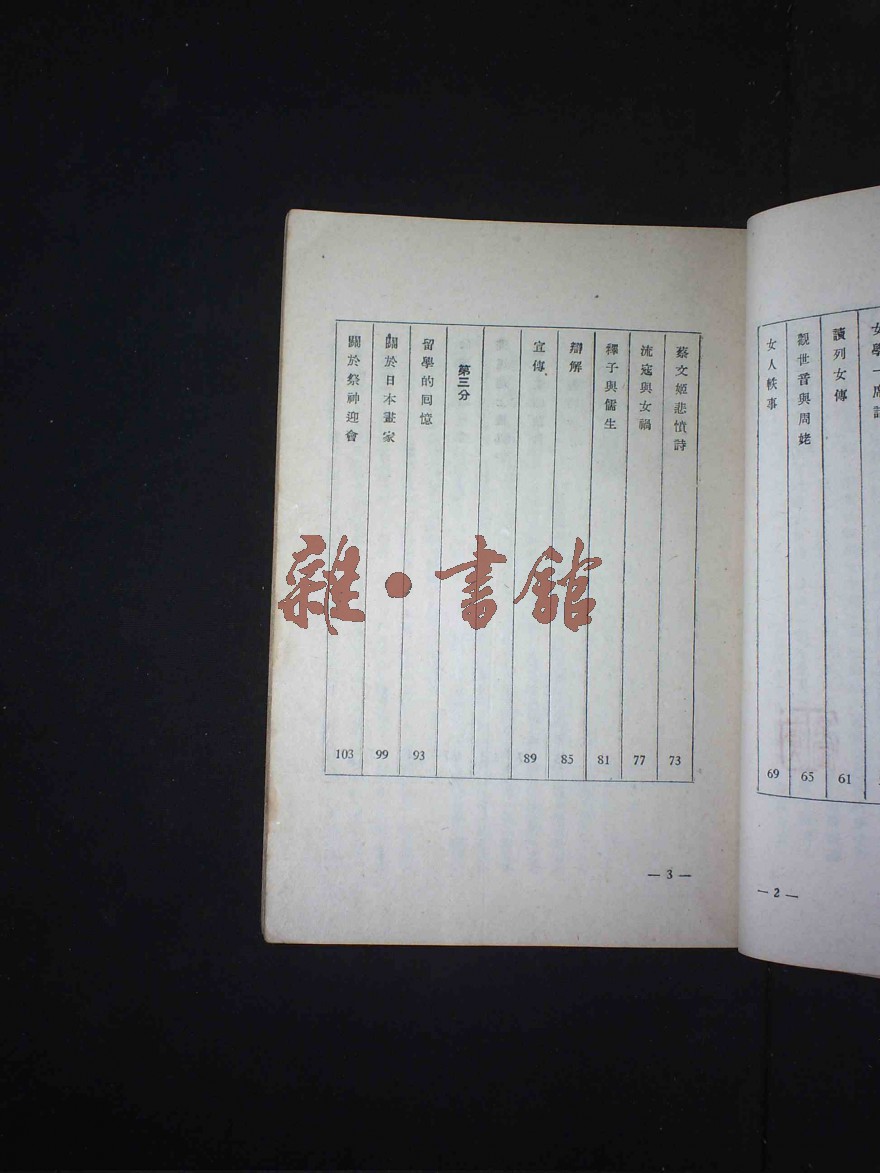 女學一席
讀列女傳 61
觀世音與周姥 65
女人軼事 69
— 2 —
蔡文姬悲憤詩 73
流寇與女禍 77
釋子與儒生 81
辯解 85
宣傳 89
第三分
留學的回憶 93
關於日本畫家 99
關於祭神迎會 103
— 3 —
雜·書館